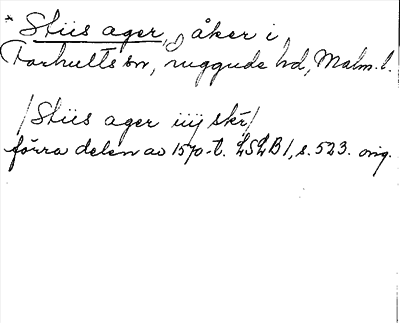 * Stiis ager, åker i
Farhults sn, Luggude hd, Malm. l.
/Stiis ager iiij skr/
förra delen av 1570-t. LSLB 1, s. 523. orig.